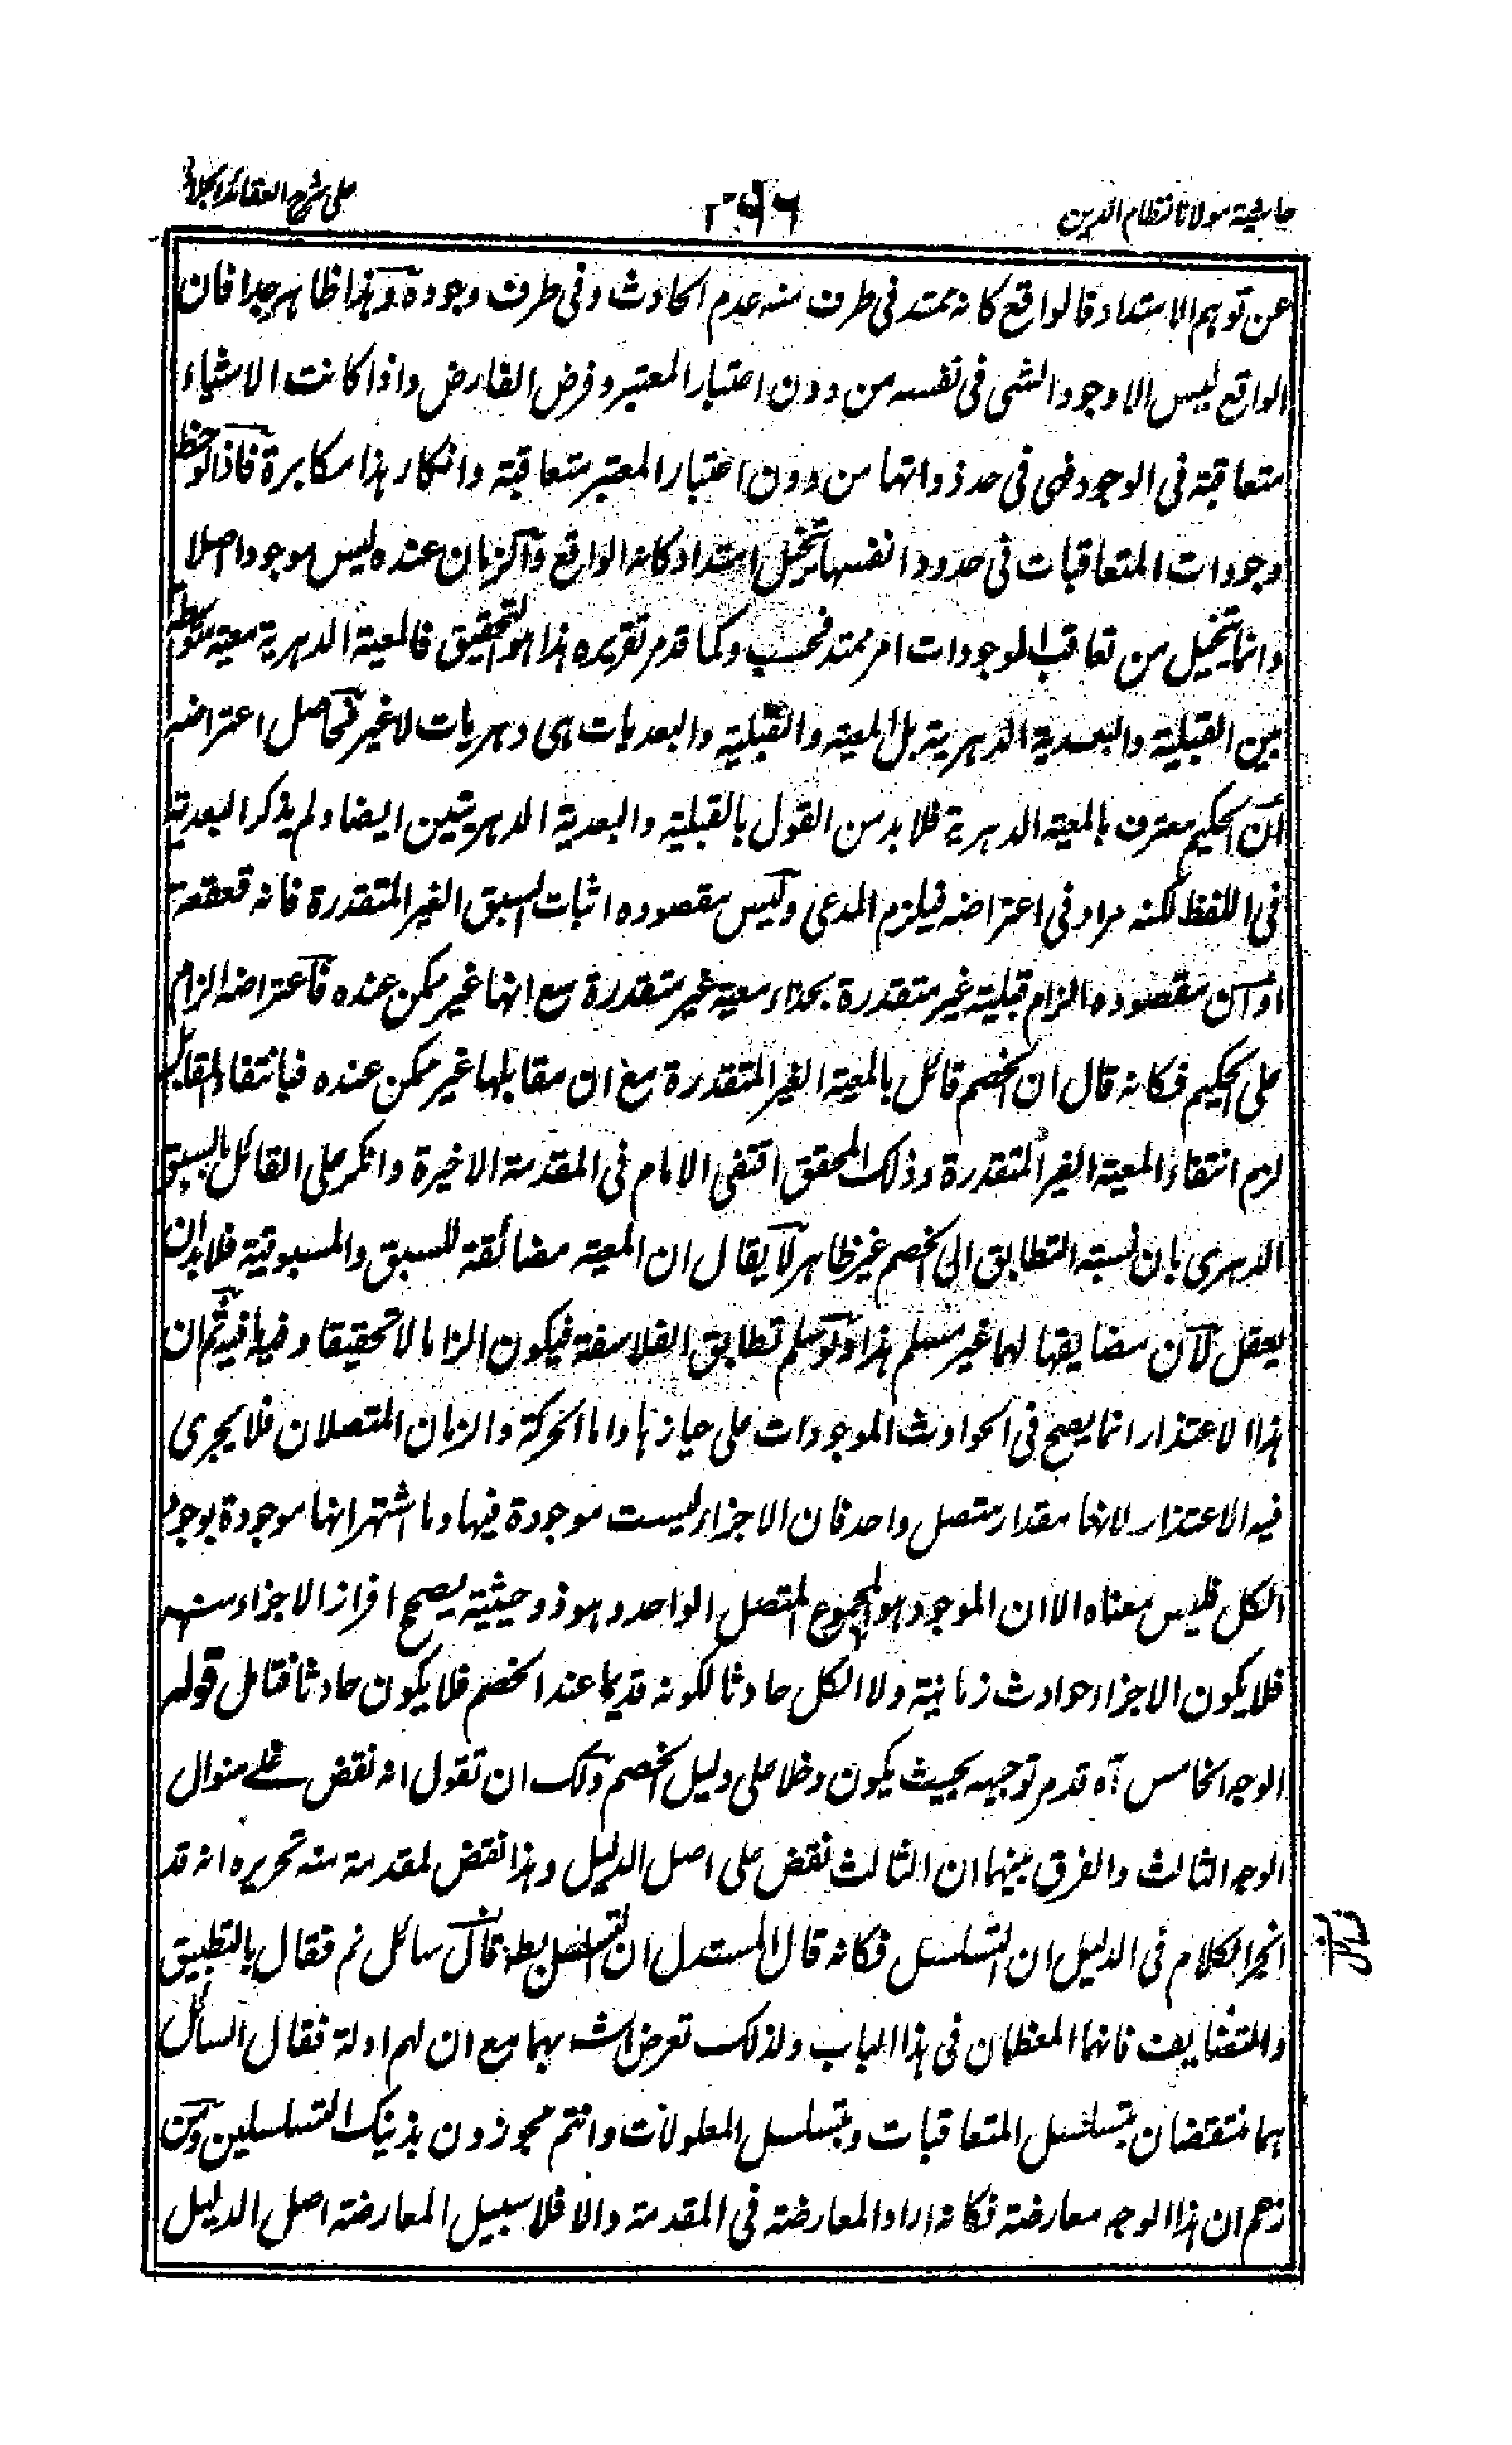 حاشية مولانا نظام الدين
على شرح العقائد
عن توهم الامتداد فالواقع كانه يمتد فى طرف منه عدم الحادث وفى طرف وجوده وهذا ظاهر جدا فان
الواقع ليس الا وجود الشى فى نفسه من دون اعتبار المعتبر وفرض الفارض واذا كانت الاشياء
متعاقبة فى الوجود فهى فى حد ذواتها من دون اعتبار المعتبر متعاقبة وانكار هذا مكابرة فاذا لوحظ
وجودات المتعاقبات فى حدود انفسها تخيل امتداد كانه الواقع والزمان عنده ليس موجودا اصلا
وانما يتخيل من تعاقب الموجودات امر ممتد فحسب وكما قد مر تقريره هذا هو التحقيق فالمعية الدهرية معية متوسطة
بين القبلية والبعدية الدهرية بل المعية والقبلية والبعديات هى دهريات لا غير فحاصل اعتراضه
ان الحكيم معترف بالمعية الدهرية فلا بد من القول بالقبلية والبعدية الدهريتين ايضا ولم يذكر البعدية
فى اللفظ لكنه مراد فى اعتراضه فيلزم المدعى وليس مقصوده اثبات السبق الغير المتقدرة فانه قعقعة
او ان مقصوده الزام قبلية غير متقدرة بحذاء معية غير متقدرة مع انها غير ممكن عنده فاعتراضه الزام
على الحكيم فكانه قال ان الخصم قائل بالمعية الغير المتقدرة مع ان مقابلها غير ممكن عنده فبانتفاء المقابل
لزم انتفاء المعية الغير المتقدرة وذلك المحقق اقتفى الامام فى المقدمة الاخيرة وانكر على القائل بالسبق
الدهرى بان نسبة التطابق الى الخصم غير ظاهر لا يقال ان المعية مضائفة للسبق والمسبوقية فلا بد ان
يعقل لان مضايفها لهما غير مسلم هذا ولو سلم تطابق الفلاسفة فيكون الزاما لا تحقيقا وفيه ما فيه ثم ان
هذا الاعتذار انما يصح فى الحوادث الموجودات على حيازها واما الحركة والزمان المتصلان فلا يجرى
فيه الاعتذار لانها مقدار متصل واحد فان الاجزاء ليست موجودة فيها وما اشتهر انها موجودة بوجود
الكل فليس معناه الا ان الموجود هو المجموع المتصل الواحد وهو ذو حيثية يصح افراز الاجزاء منه
فلا يكون الاجزاء حوادث زمانية ولا الكل حادثا لكونه قديما عند الخصم فلا يكون حادثا فتامل قوله
الوجه الخامس آه قد مر توجيهه بحيث يكون دخلا على دليل الخصم ولك ان تقول انه نقض على منوال
الوجه الثالث والفرق بينهما ان الثالث نقض على اصل الدليل وهذا نقض لمقدمة منه تحريره انه قد
انجر الكلام فى الدليل ان التسلسل فكانه قال المستدل ان التسلسل بط فان قال سائل لم فقال بالتطبيق
والتضايف فانهما المعظمان فى هذا الباب ولذلك تعرض الش بهما مع ان لهم ادلة فقال السائل
هما منتقضان بتسلسل المتعاقبات وبتسلسل المعلولات وانتم مجوزون بذينك التسلسلين ومن
زعم ان هذا الوجه معارضة فكانه اراد المعارضة فى المقدمة والا فلا سبيل المعارضة اصل الدليل